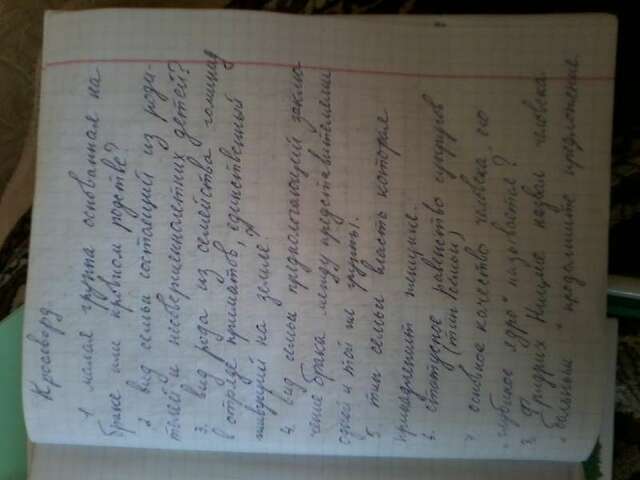 Кросворд
1 малая группа основанная на
браке или кровном родстве?
2 вид семьи состоящий из роди-
телей и несовершеннолетних детей?
3. вид рода из семейства гоминид
в отряде приматов, единственный
живущий на земле?
4. вид семьи предполагающий заклю
чение брака между представителями
одной и той же группы).
5. тип семьи власть которая
принадлежит женщине.
6. статусное равенство супругов
(тип семьи)
7 особое качество человека его
"глубокое ядро" называется?
8. Фридрих Ницше назвал человека
"больным" продолжите предложение